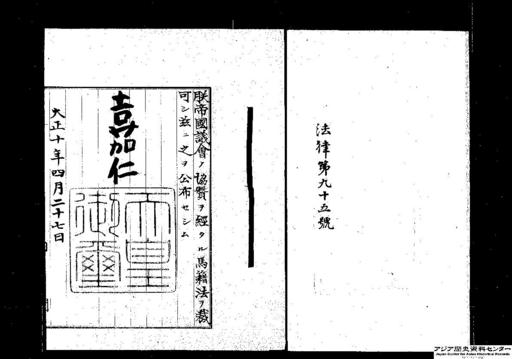 法律第九十五號
朕帝國議會ノ協賛ヲ經タル馬籍法ヲ裁
可シ茲ニ之ヲ公布セシム
嘉仁
天皇
御璽
大正十年四月二十七日
アジア歴史資料センター
Japan Center for Asian Historical Records